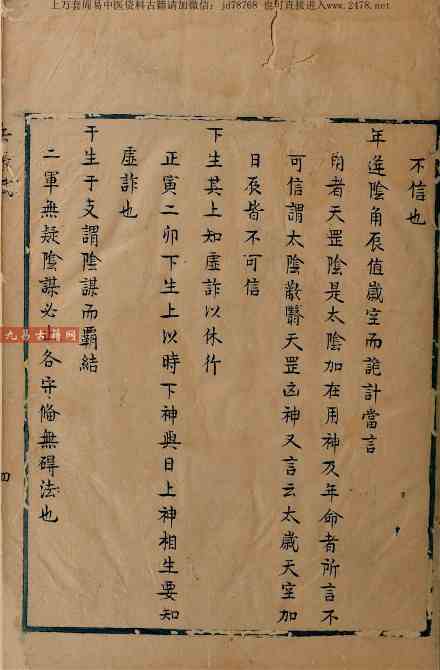 上万套周易中医资料古籍请加微信：jd78768 也可直接进入www.2478.net
不信也
年逢陰角辰值歲空而詭計當言
角者天罡陰是太陰加在用神及年命者所言不
可信謂太陰蔽翳天罡凶神又言云太歲天空加
日辰皆不可信
下生其上知虛詐以休行
正寅二卯下生上以時下神與日上神相生要知
虛詐也
干生于支謂陰謀而霸結
二軍無疑陰謀必各守備無碍法也
九易古籍网
四